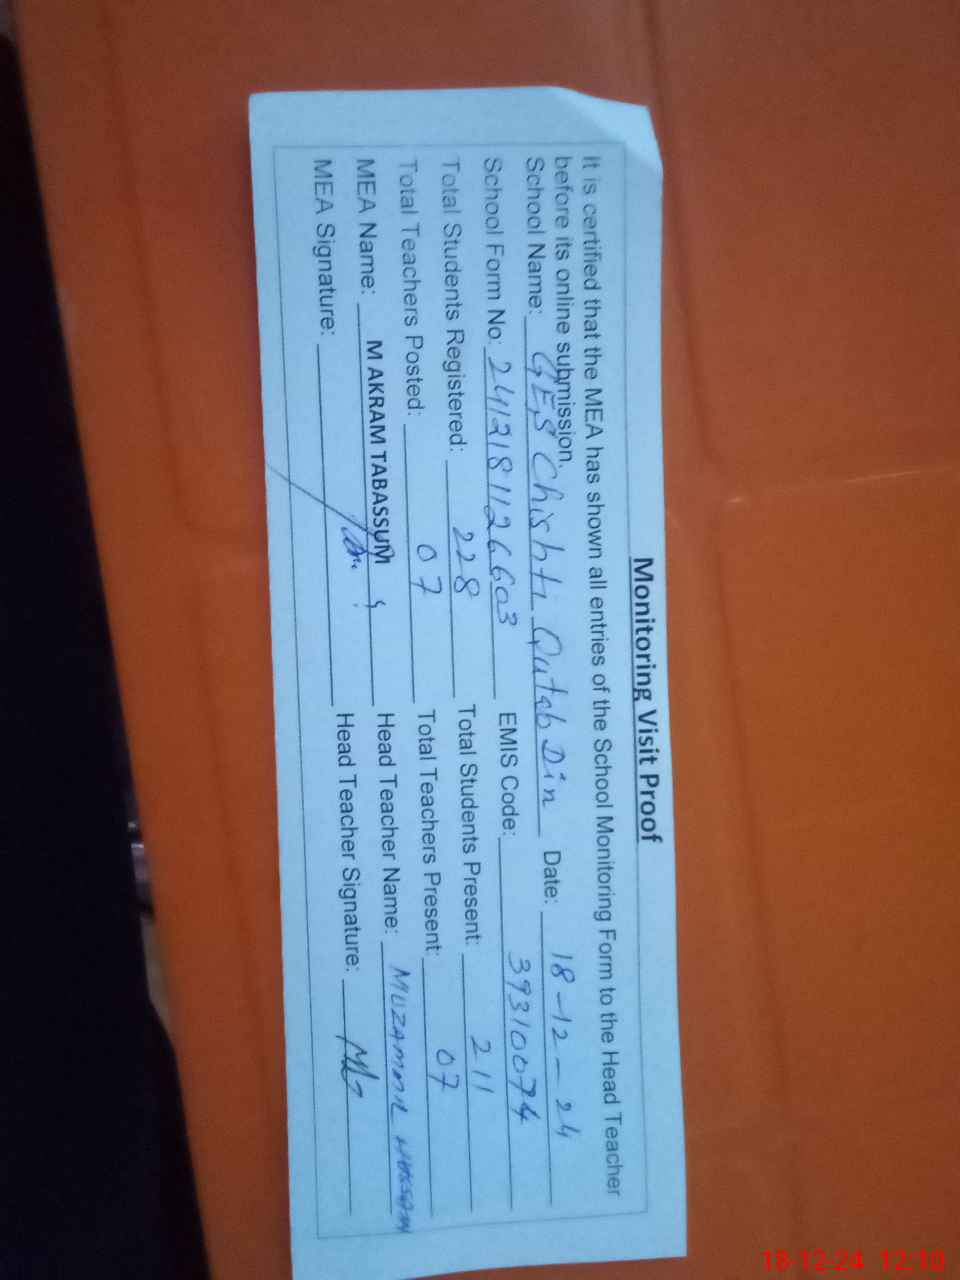 Monitoring Visit Proof
It is certified that the MEA has shown all entries of the School Monitoring Form to the Head Teacher
before its online submission.
School Name: GES Chishti Qutab Din Date: 18-12-24
School Form No: 2412181126603 EMIS Code: 39310074
Total Students Registered: 228 Total Students Present: 211
Total Teachers Posted: 07 Total Teachers Present: 07
MEA Name: M AKRAM TABASSUM Head Teacher Name: MUZAMMIL HASSAN
MEA Signature: Head Teacher Signature:
18-12-24 12:10